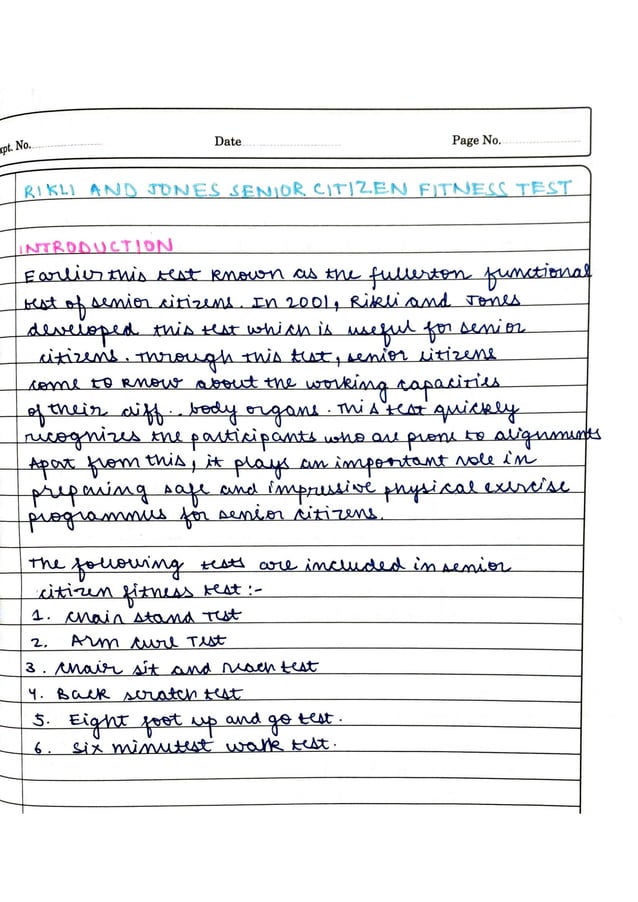 xpt. No.
Date
Page No.
RIKLI AND JONES SENIOR CITIZEN FITNESS TEST
INTRODUCTION
Earlier this test known as the fullerton functional
test of senior citizens. In 2001, Rikli and Jones
developed this test which is useful for senior
citizens. Through this test, senior citizens
come to know about the working capacities
of their diff.. body organs. This test quickly
recognizes the participants who are prone to alignments
Apart from this, it plays an important role in
preparing safe and impressive physical exercise
programmes for senior citizens.
The following tests are included in senior
citizen fitness test :-
1. Chair stand Test
2. Arm curl Test
3. Chair sit and reach test
4. Back scratch test
5. Eight foot up and go test.
6. Six minutest walk test.